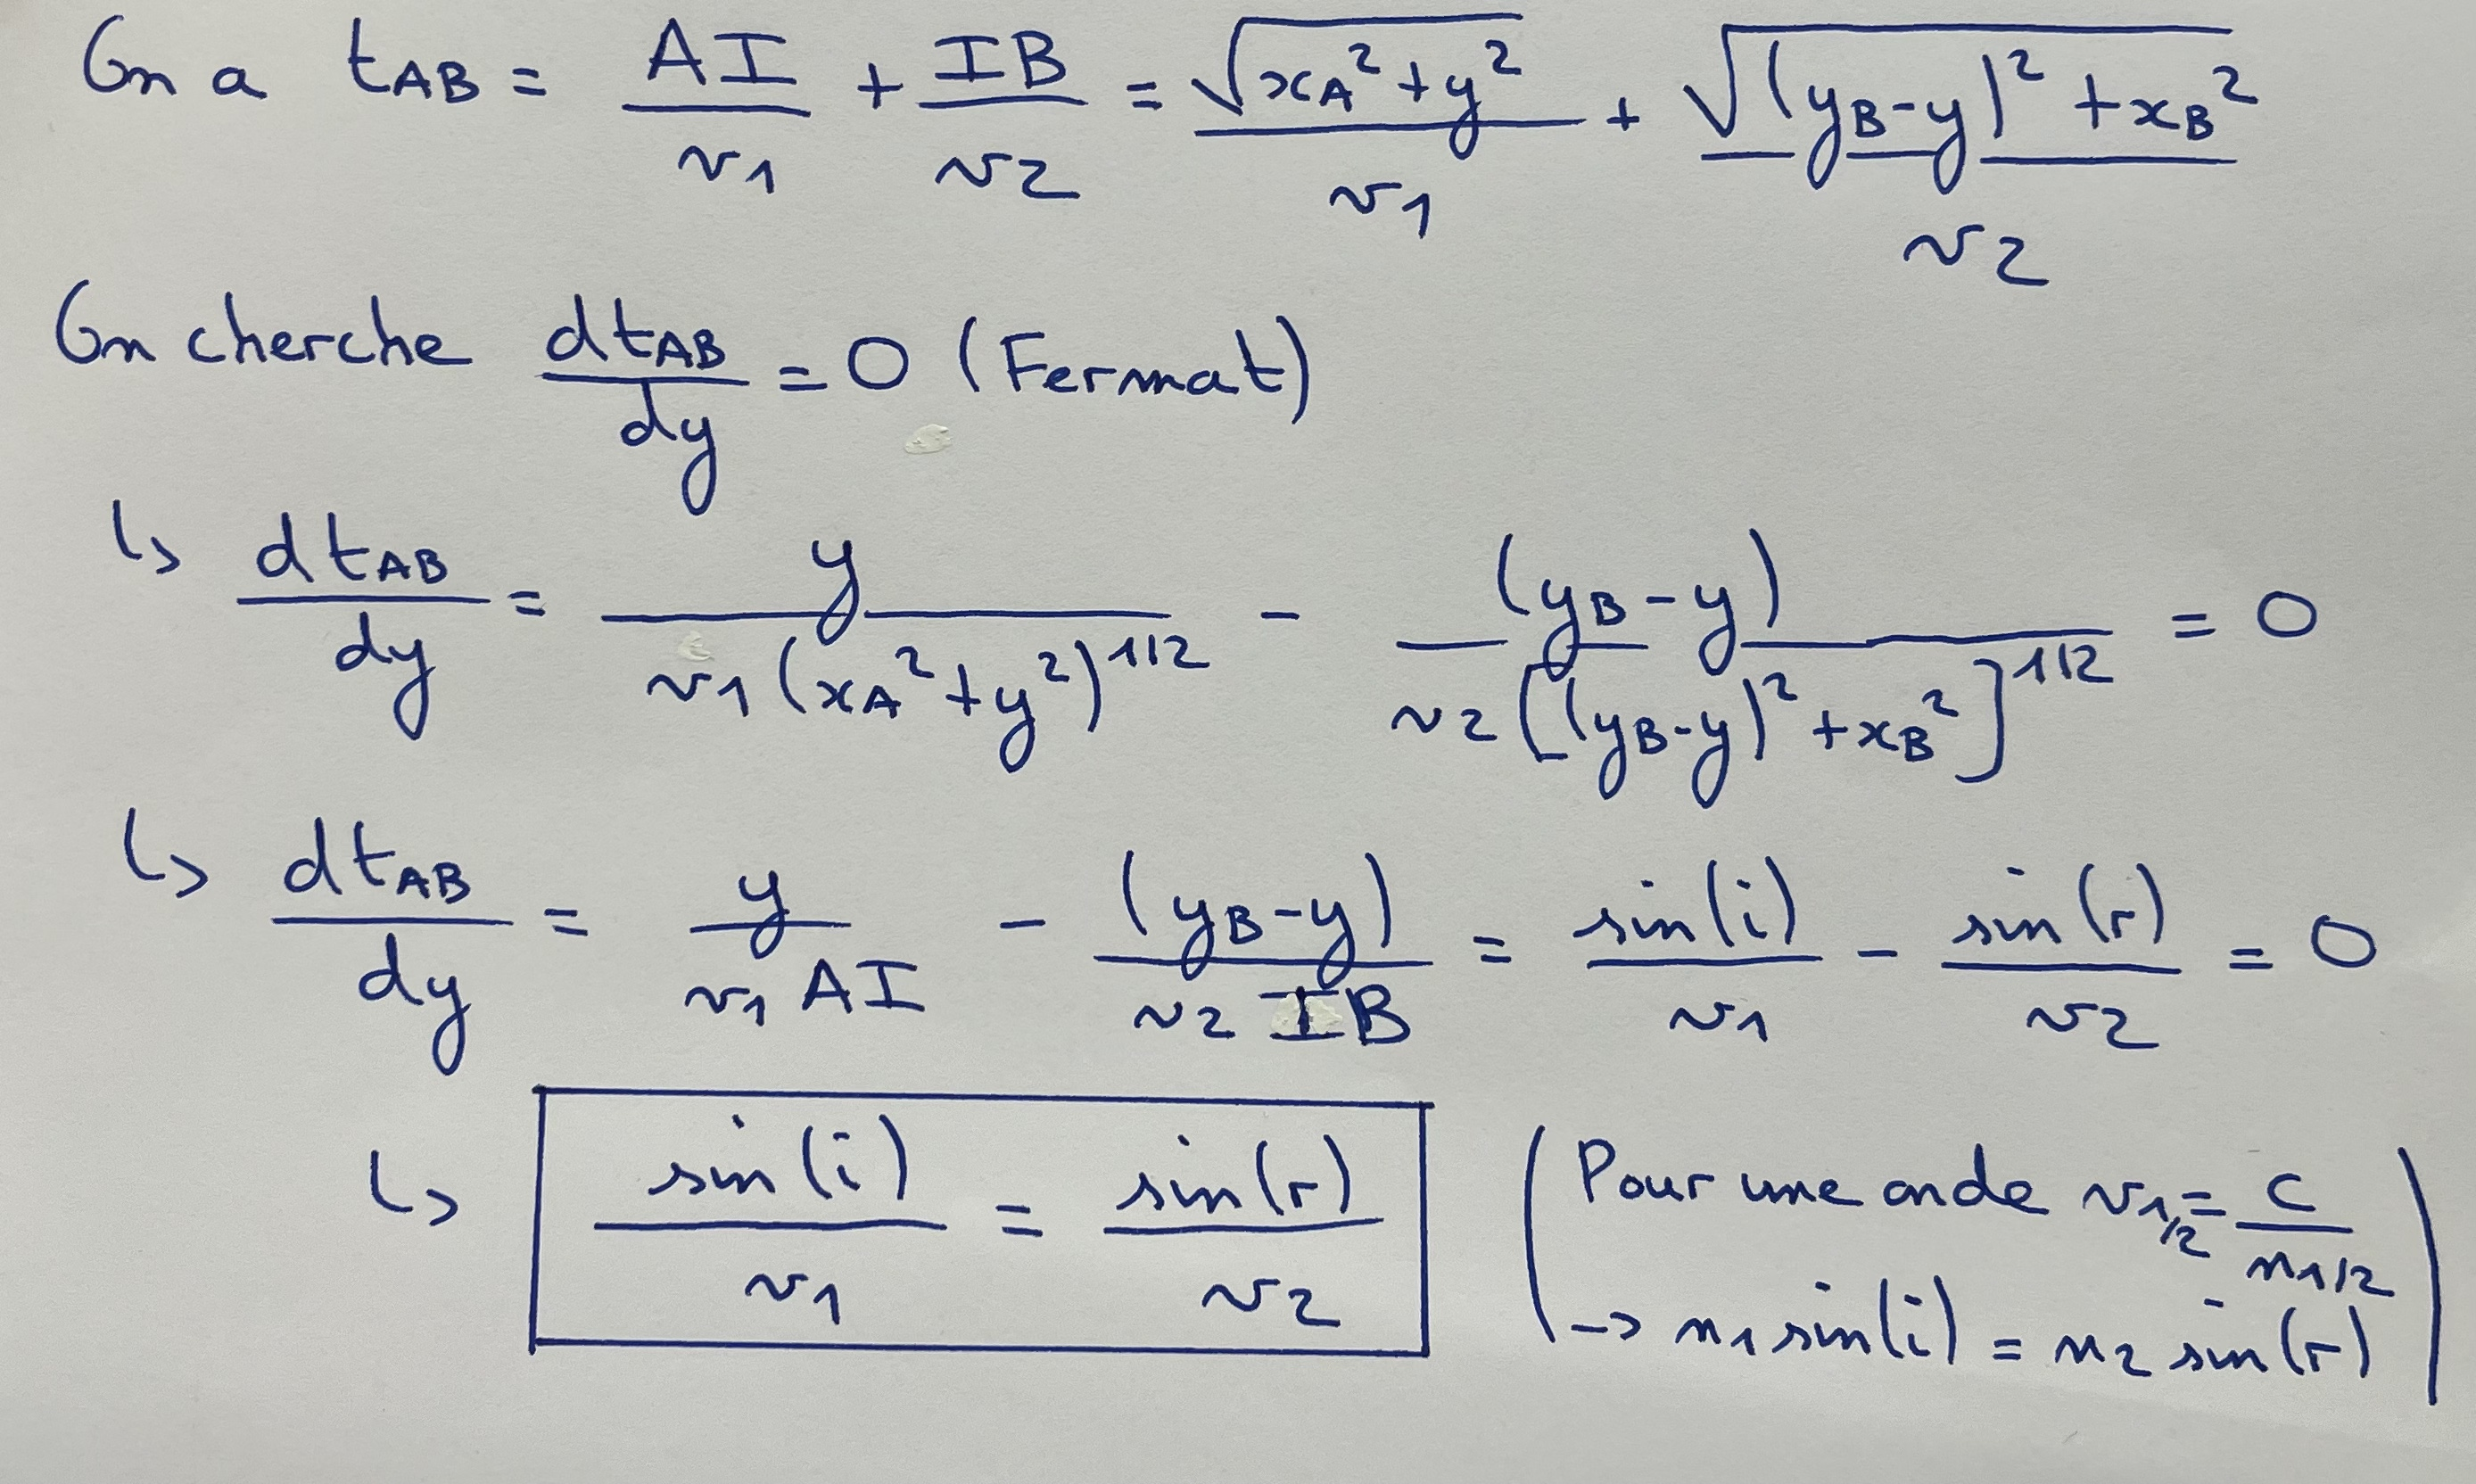 On a tAB = AI/v1 + IB/v2 = √(xA² + y²)/v1 + √((yB-y)² + xB²)/v2
On cherche dtAB/dy = 0 (Fermat)
↳ dtAB/dy = y/(v1(xA²+y²)^1/2) - (yB-y)/(v2[(yB-y)²+xB²]^1/2) = 0
↳ dtAB/dy = y/(v1 AI) - (yB-y)/(v2 IB) = sin(i)/v1 - sin(r)/v2 = 0
↳ sin(i)/v1 = sin(r)/v2
(Pour une onde v1/2 = c/n1/2
→ n1 sin(i) = n2 sin(r))